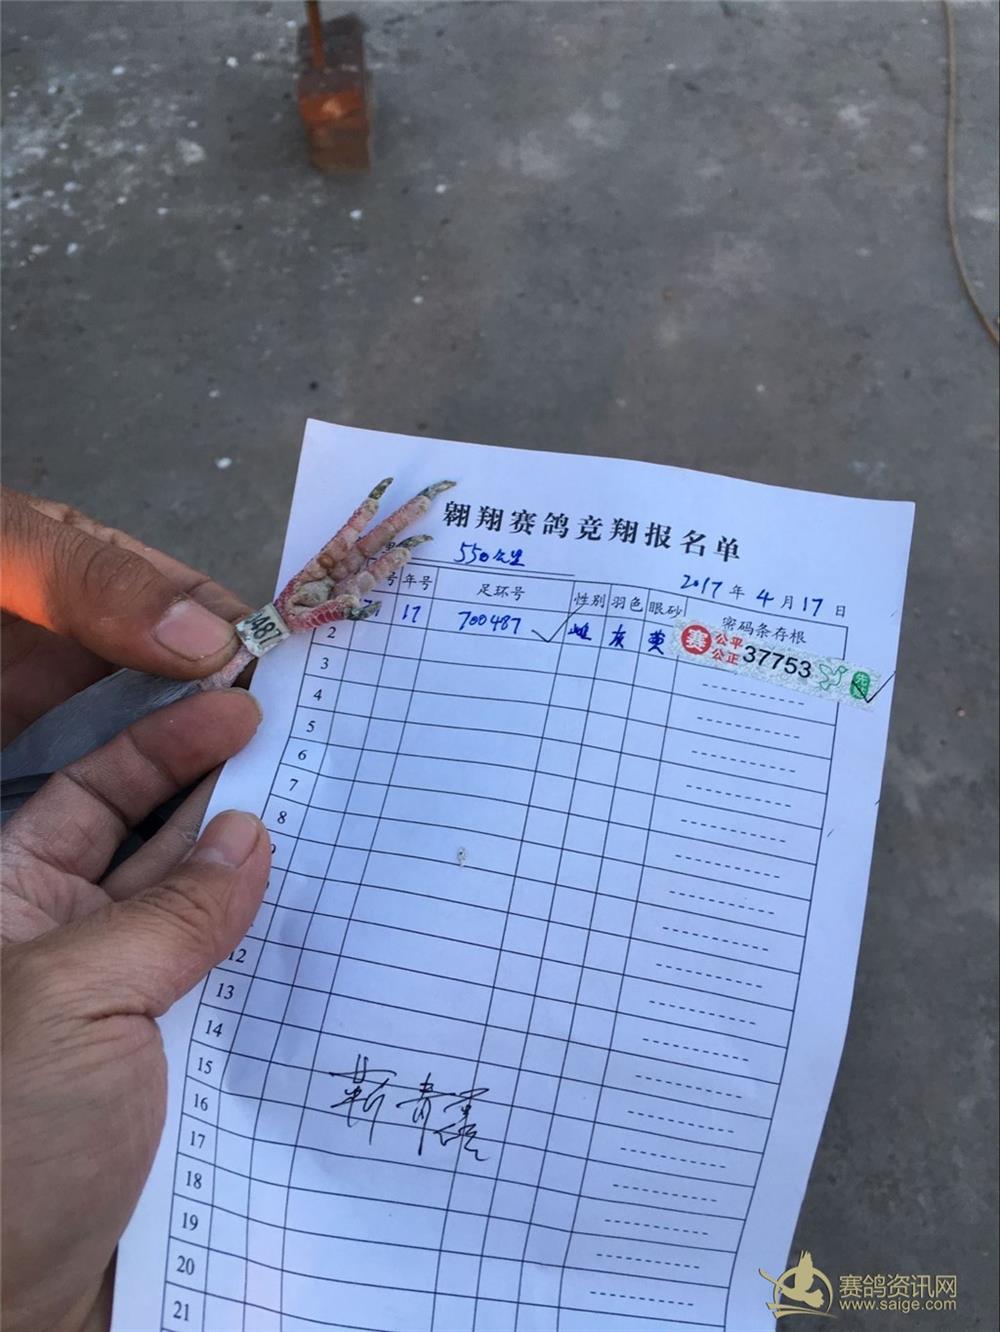 翱翔赛鸽竞翔报名单
550公里
2017年4月17日
号 年号 足环号 性别 羽色 眼砂 密码条存根
17 700487 雌 灰 黄
赛 公平 公正 37753
487
2
3
4
5
6
7
8
12
13
14
15
16
17
18
19
20
21
赛鸽资讯网
www.saige.com